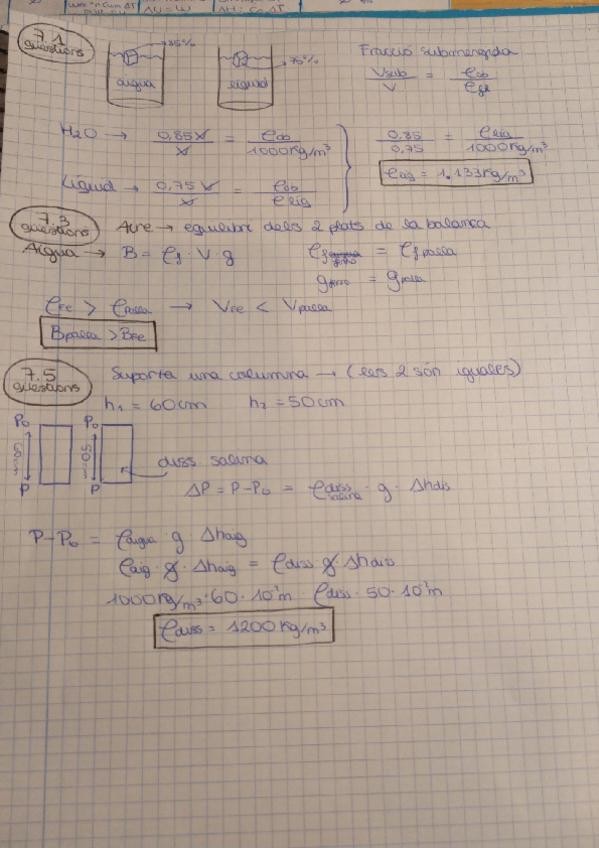 ΔU = W
ΔH = Cp ΔT
7.1
questions
85%
aigua
75%
líquid
Fracció submergida
Vsub / V = ρob / ρfl
H2O → 0,85V / V = ρob / 1000 Kg/m³
0,85 / 0,75 = ρliq / 1000Kg/m³
Líquid → 0,75V / V = ρob / ρliq
ρliq = 1.133Kg/m³
7.3
questions
Aire → equilibre dels 2 plats de la balança
Aigua → B = ρf · V · g
= ρf palla
g ferro = g palla
ρFe > ρpalla → VFe < Vpalla
Bpalla > BFe
7.5
questions
Suporta una columna → (les 2 són iguales)
h1 = 60cm h2 = 50cm
P0
P0
50cm
P
P
diss salina
ΔP = P-P0 = ρdiss salina · g · Δhdis
P-P0 = ρaigua g Δhaig
ρaig · g · Δhaig = ρdiss g · Δhdiss
1000Kg/m³ · 60 · 10⁻²m ρdiss · 50 · 10⁻²m
ρdiss = 1200 Kg/m³